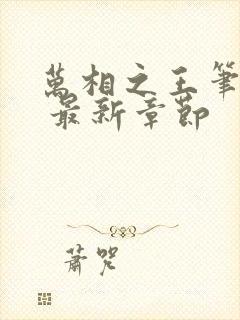 萬相之王筆
最新章節
蕭咒